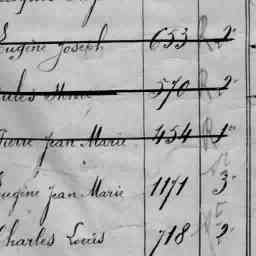 Eugène Joseph 653 R 2e
Jules 570 R 2e
Pierre Jean Marie 454 R 1e
Eugène Jean Marie 1171 3e
Charles Louis 718 2e